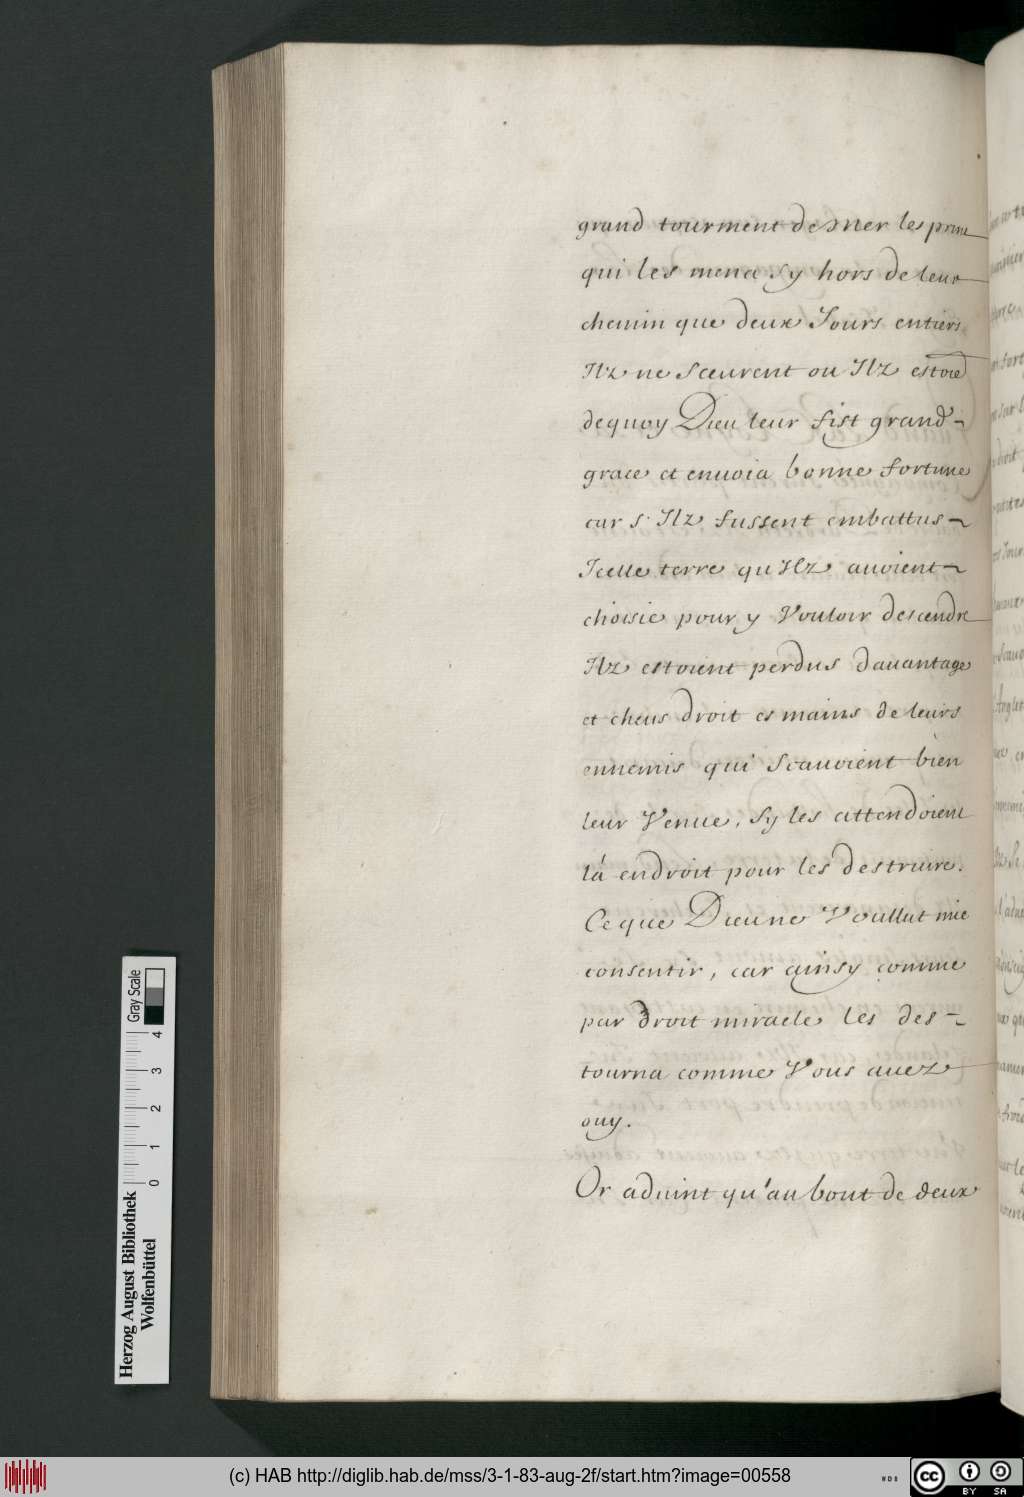 grand tourment de Mer les prim
qui les mena sy hors de leur
chemin que deux Jours entiers
Ilz ne Sceurent ou Ilz estoiẽt
dequoy Dieu leur fist grand
grace et envoia bonne fortune
car s'Ilz fussent embattus
Icelle terre qu'Ilz auoient
choisie pour y Vouloir descendre
Ilz estoient perdus dauantage
et cheus droit es mains de leurs
ennemis qui Scauoient bien
leur Venue, Sy les attendoient
là endroit pour les destruire.
Ce que Dieu ne Voullut mie
consentir, car ainsy comme
par droit miracle les des-
tourna comme Vous auez
ouy.
Or aduint qu'au bout de deux
Herzog August Bibliothek
Wolfenbüttel
Gray Scale
0 1 2 3 4
(c) HAB http://diglib.hab.de/mss/3-1-83-aug-2f/start.htm?image=00558
WDB
cc BY SA